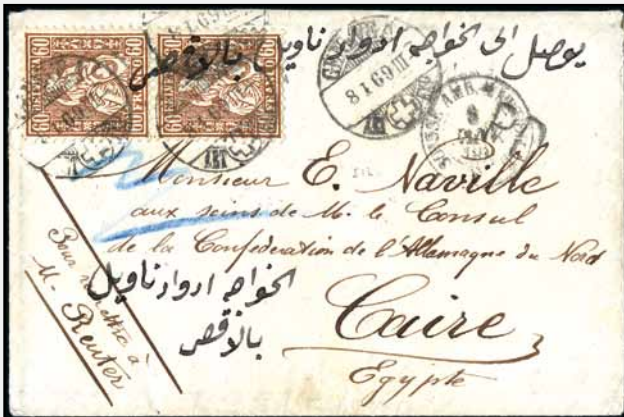 60 60 60 60
يوصل الى الخواجه ادوارد ناويل بالاقصر
GENÈVE
8 I 69 III
Monsieur E. Naville
aux soins de M. le Consul
de la Confédération de l'Allemagne du Nord
Caire
Egypte
Pour remettre à
M. Reuter
الخواجه ادوارد ناويل
بالاقصر